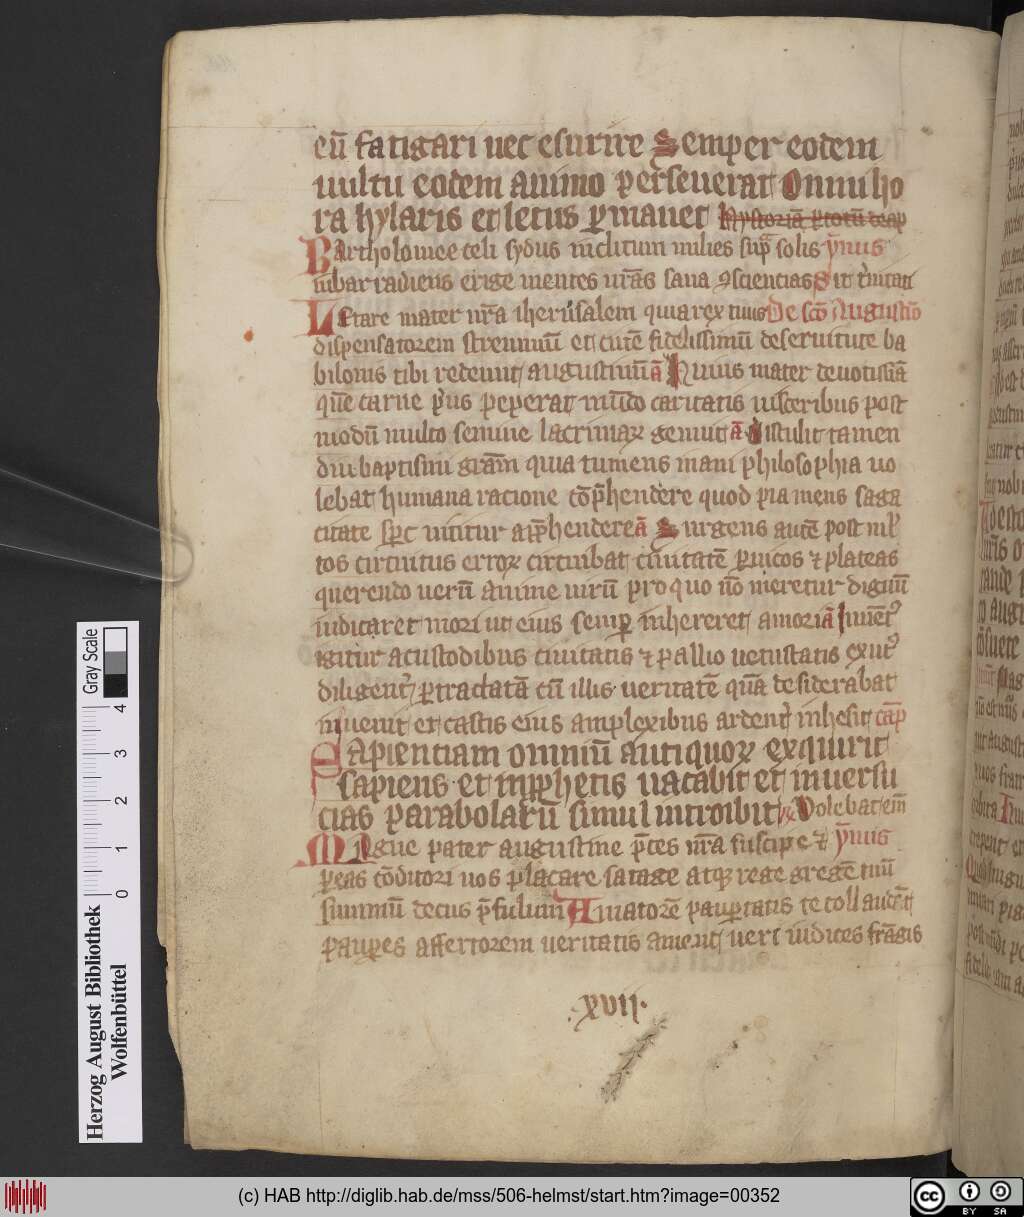 eū fatigari nec esurire Semper eodem
uultu eodem animo perseuerat Omni ho
ra hylaris et letus ꝑmanet
Bartholomee celi sydus inclitum milies sup̄ solis ȳmus
iubar radiens erige mentes nr̄as sana ꝯsciencias Sit t̓nitati
Letare mater nr̄a iherusalem quia rex tuus De sc̄o Augustīo
dispensatorem strennuū et ciuē fidelissimū de seruitute ba
bilonis tibi redemit augustinū ā Huius mater deuotissīa
quē carne pⁱus pepererat mūdo caritatis uisceribus post
modū multo semine lacrimaꝝ genuit ā Distulit tamen
diu baptismi grām quia tumens inani philosophia uo
lebat humana racione cōp̄hendere quod pia mens saga
citate sp̄c nititur app̄hendere ā Surgens autē post ml̓
tos circuitus erroꝝ circuibat ciuitatē ꝑ uicos ⁊ plateas
querendo uerū anime uirū pro quo nō meretur dignū
iudicaret mori ut eius semꝑ inhereret amori ā Inuēt᾿
igitur a custodibus ciuitatis ⁊ pallio uetustatis exut᾿
diligent̓ ꝑtractatā cū illis ueritatē quā desiderabat
inuenit et castis eius amplexibus ardent̓ inhesit cap̄
Sapienciam omniū antiquoꝝ exquirit
sapiens et in ꝓphetis uacabit et in uersu
cias parabolarū simul introibit ꝶ Volebat em̄
Magne pater augustine p̄ces nr̄a suscipe ⁊ ȳmus
ꝑ eas cōditori nos placare satage atqꝫ rege gregē tuū
summū decus p̄sulum Amatorē pauꝑtatis te collaudāt
pauꝑes assertorem ueritatis amant ueri iudices frāgis
.xvii.
Gray Scale
4
3
2
1
0
Herzog August Bibliothek
Wolfenbüttel
(c) HAB http://diglib.hab.de/mss/506-helmst/start.htm?image=00352
cc
BY SA